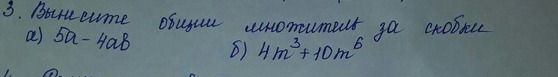 3. Вынесите общий множитель за скобки
а) 5a - 4ab
б) 4m³ + 10m⁶